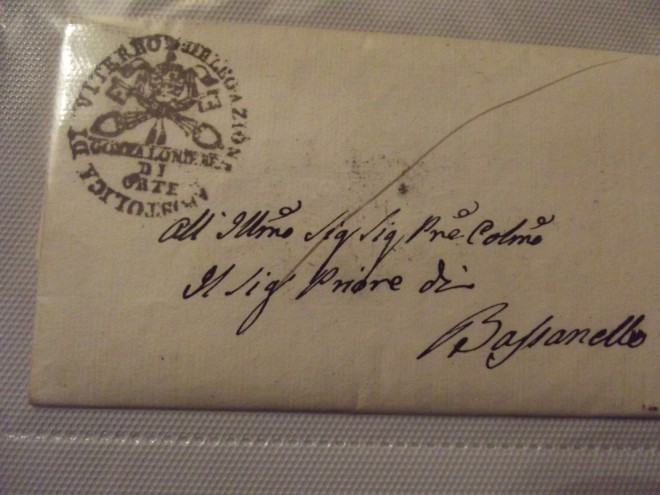 DELEGAZIONE APOSTOLICA DI VITERBO
GONFALONIERE
DI
ORTE
All' Illmo Sig Sig Prē Colmo
Il Sig Priore di
Bassanello